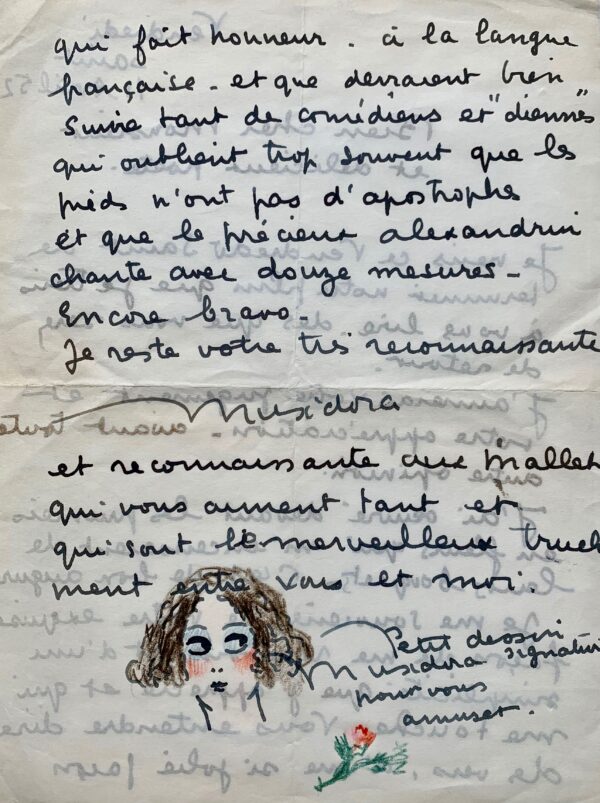 qui fait honneur. à la langue
française. et que devraient bien
suivre tant de comédiens et "diennes"
qui oublient trop souvent que les
pieds n'ont pas d'apostrophe
et que le précieux alexandrin
chante avec douze mesures_
Encore bravo.
Je reste votre très reconnaissante
Musidora
et reconnaissante aux Mallet
qui vous aiment tant et
qui sont le merveilleux truch
ment entre vous et moi.
Petit dessin
Musidora signature
pour vous
amuser.